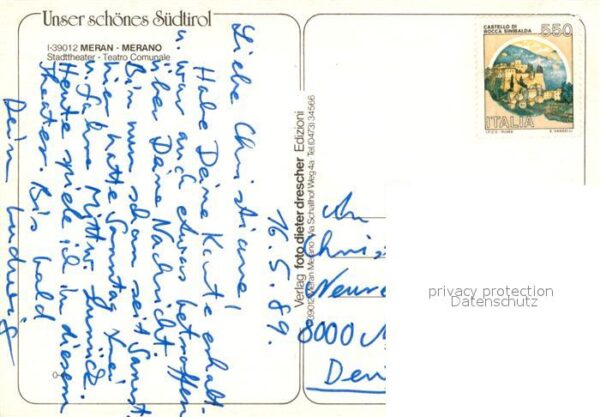 Unser schönes Südtirol
I-39012 MERAN - MERANO
Stadttheater - Teatro Comunale
16.5.89.
Liebe Christiane!
Habe Deine Karte erhalt.
u. war auch etwas betroffen
über Deine Nachricht.
Bin nun schon seit Samst.
hier, hatte Sonntag frei
u. fahre Mittw. zurück.
Heute spiele ich in diesem
Theater. Bis bald
Dein Ludwig
Verlag foto dieter drescher Edizioni
39012 Meran Merano Via Schaffhof Weg 4a Tel. (0473) 34566
CASTELLO DI
ROCCA SINIBALDA
550
ITALIA
I.P.Z.S. - ROMA
E. VANGELLI
An
Chris
8000 M
privacy protection
Datenschutz